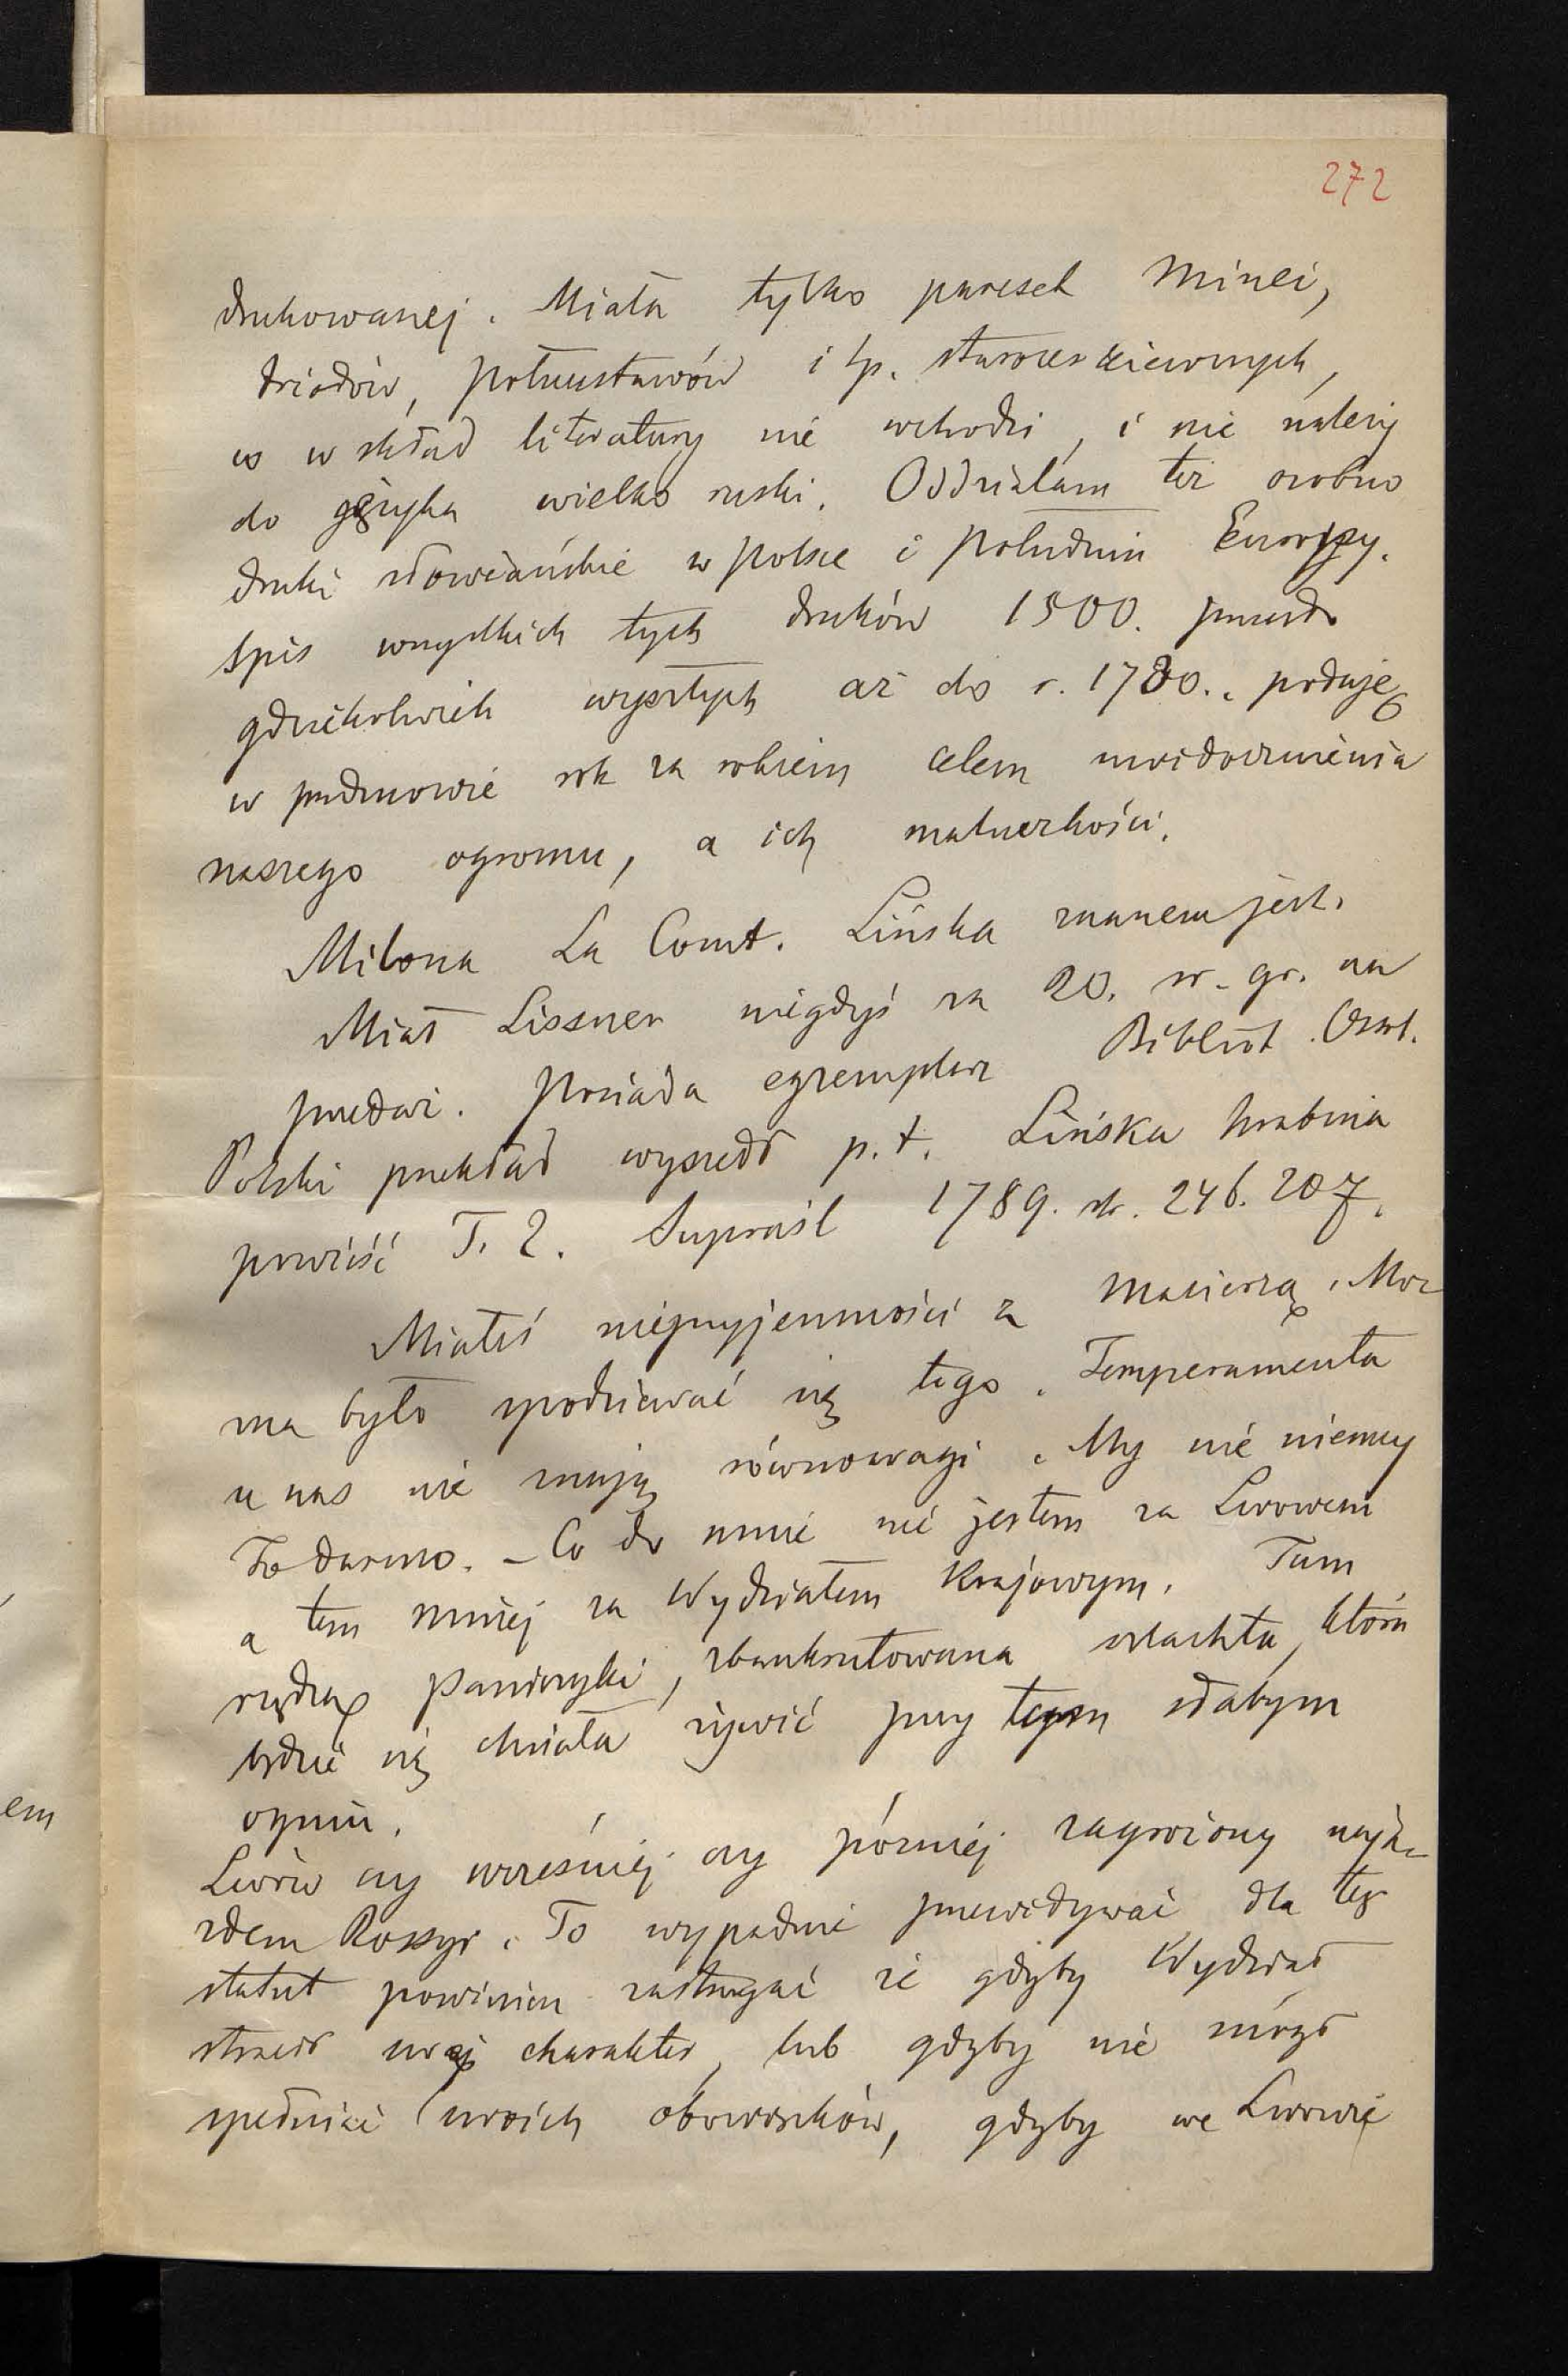 272
drukowanej. Miała tylko pareset Minei,
triodów, połuustawów i tp. starocerkiewnych,
co w skład literatury nie wchodzi, i nie należy
do języka wielko ruski. Oddzialam też osobno
druki słowiańskie w Polsce i Południu Europy.
Spis wszystkich tych druków 1500. przeszło
gdziekolwiek wyszłych aż do r. 1780., podaję
w przedmowie rok za rokiem celem uwidocznienia
naszego ogromu, a ich maluczkości.
Milona La Comt. Lińska znanem jest.
Miał Lissner niegdyś za 20. sr. gr. na
przedaż. Posiada egzemplarz Bibliot. Ossol.
Polski przekład wyszedł p. t. Lińska hrabina
powieść T. 2. Supraśl 1789. str. 246. 207.
Miałeś nieprzyjemności z Macierzą. Moż
ma było spodziewać się tego. Temperamenta
u nas nie mają równowagi. My nie niemcy
To darmo. – Co do mnie nie jestem za Lwowem
a tem mniej za Wydziałem Krajowym. Tam
rządzą Paniczyki, zbankrutowana szlachta, która
będzie się chciała żywić przy tym słabym
ogniu.
Lwów czy wcześniej czy później zagrożony naja-
zdem Rossyi. To wypadnie przewidywać dla teg
statut powinien zastrzegać że gdyby Wydział
stracił swój charakter, lub gdyby nie mógł
spełniać swoich obowiązków, gdyby we Lwowie
em